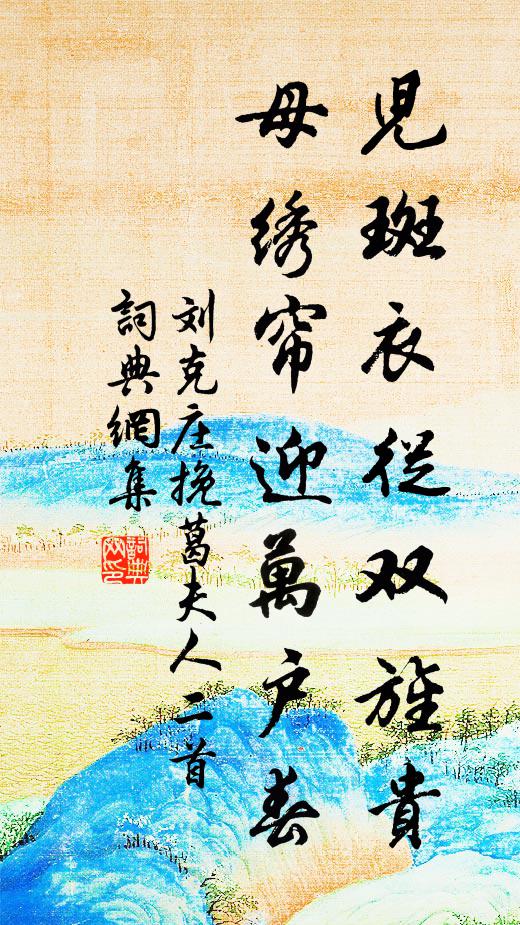 児斑衣從双旌貴
母绣帘迎萬户春
刘克庄挽葛夫人二首
詞典網集